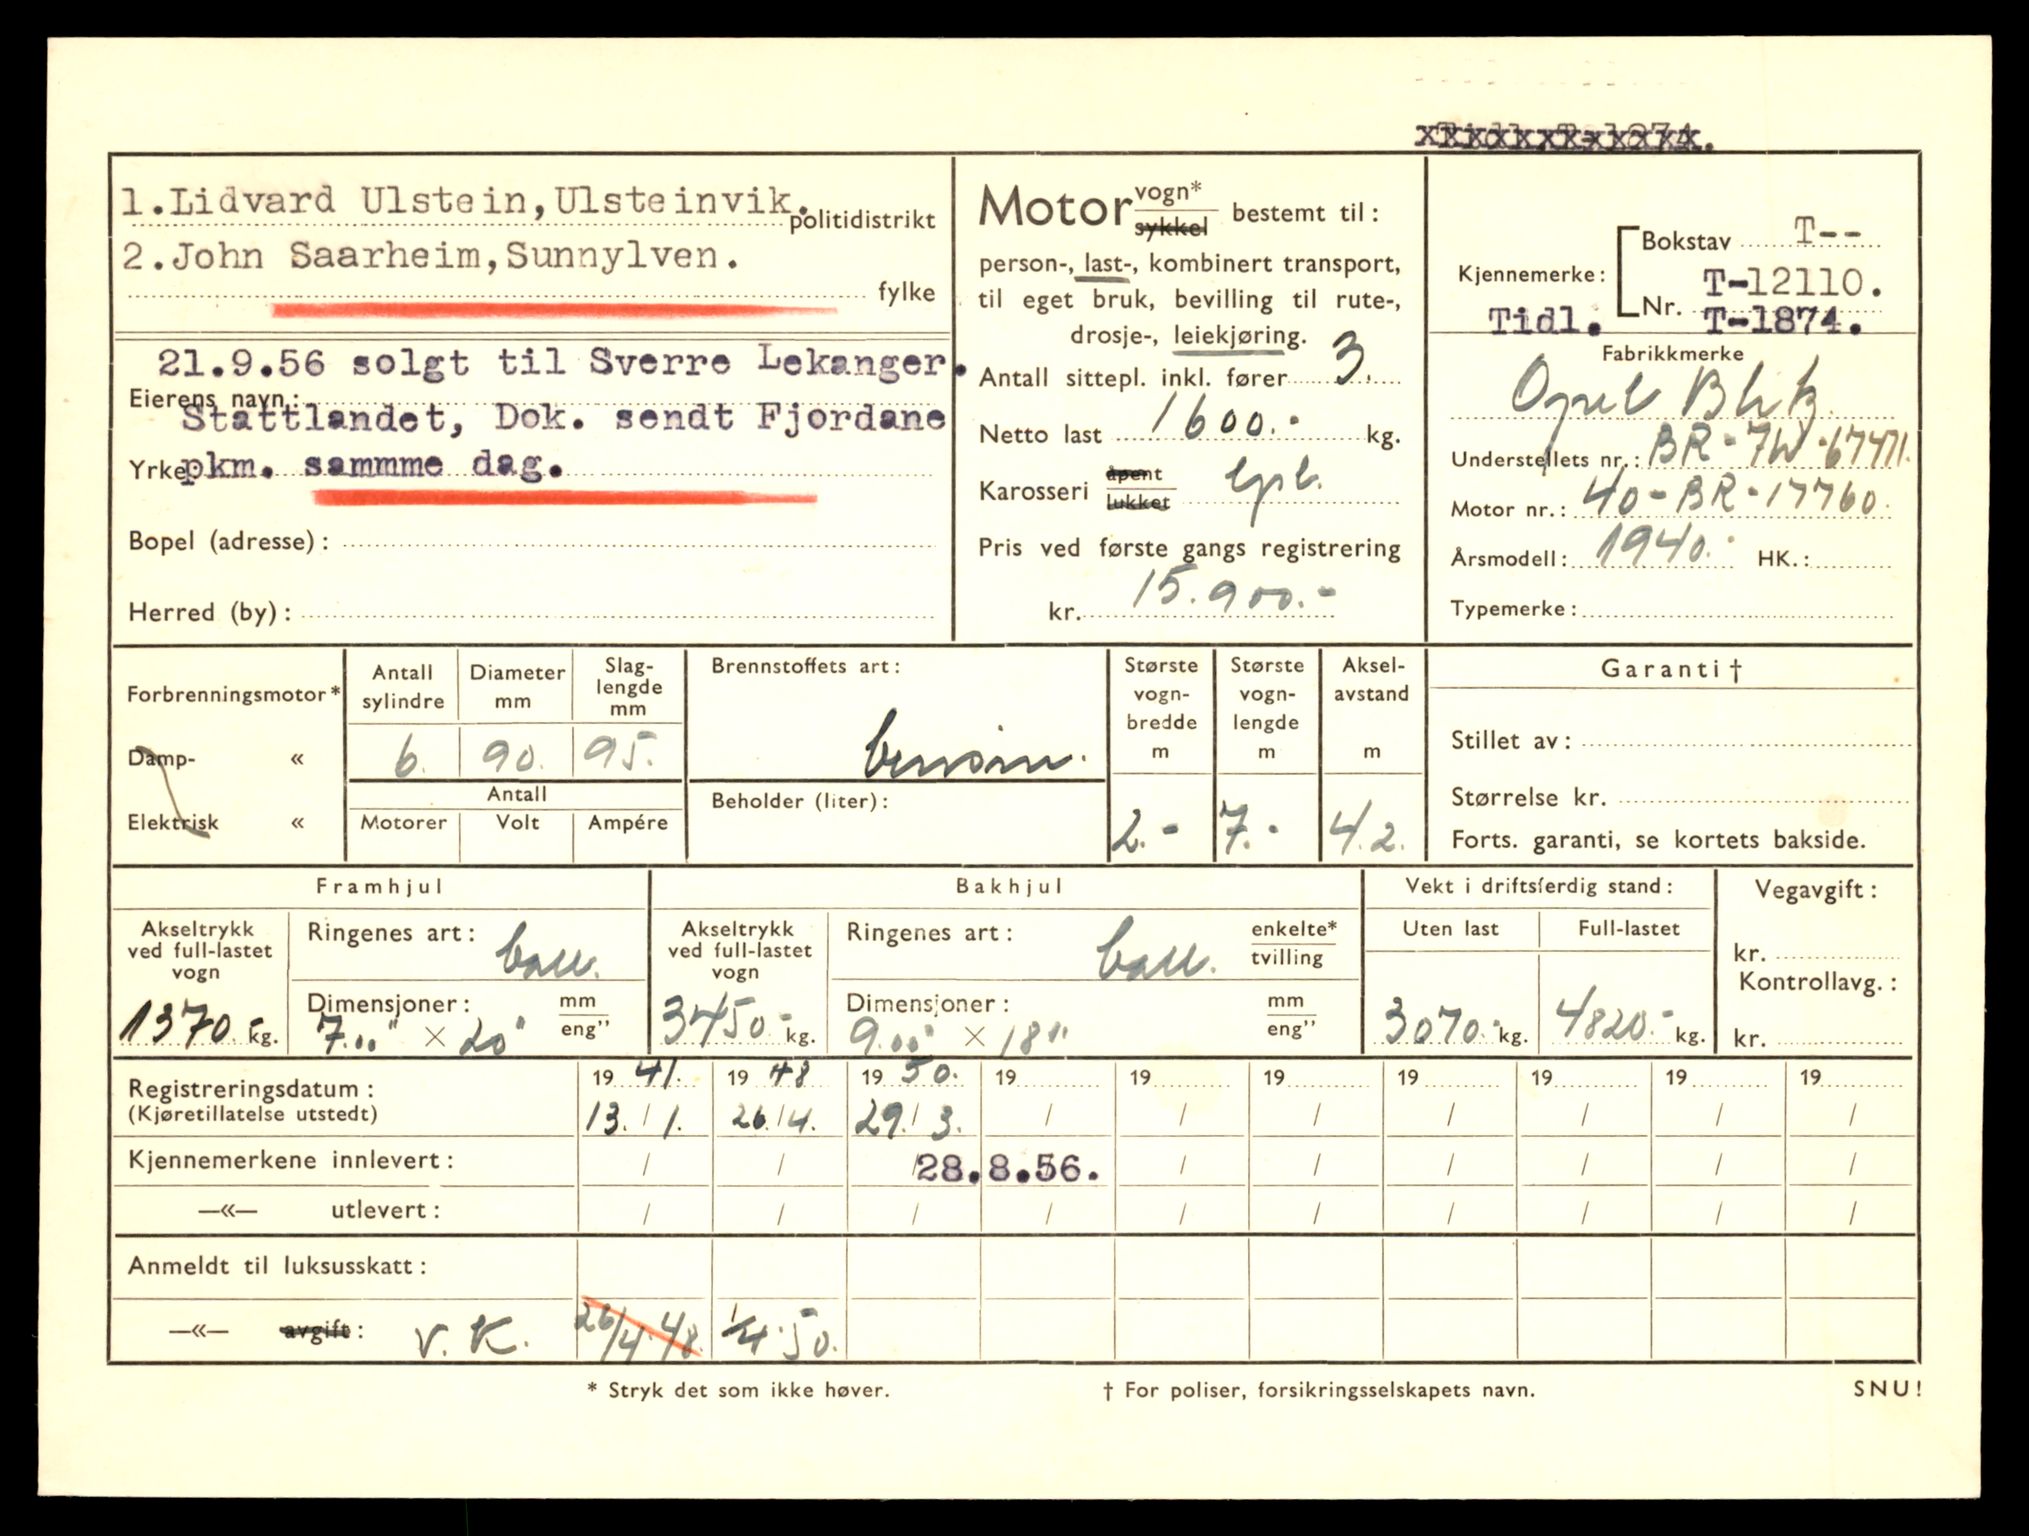 1.Lidvard Ulstein,Ulsteinvik.
politidistrikt
2.John Saarheim,Sunnylven.
fylke
21.9.56 solgt til Sverre Lekanger.
Eierens navn:
Stattlandet, Dok. sendt Fjordane
Yrke pkm. sammme dag.
Bopel (adresse):
Herred (by):
Motor vogn*
sykkel bestemt til:
person-, last-, kombinert transport,
til eget bruk, bevilling til rute-,
drosje-, leiekjøring.
Antall sittepl. inkl. fører 3.
Netto last 1600.- kg.
Karosseri åpent
lukket
Pris ved første gangs registrering
kr. 15.900.-
Bokstav T--
Kjennemerke: T-12110.
Nr.
Tidl. T-1874.
Fabrikkmerke
Opel Blitz
Understellets nr.: BR-7W-67471.
Motor nr.: 40-BR-17760.
Årsmodell: 1940. HK.:
Typemerke:
Forbrenningsmotor*
Damp- «
Elektrisk «
Antall sylindre
Diameter mm
Slag-
lengde
mm
6. 90. 95.
Antall
Motorer Volt Ampére
Brennstoffets art:
bensin.
Beholder (liter):
Største
vogn-
bredde
m
2.-
Største
vogn-
lengde
m
7.-
Aksel-
avstand
m
4.2.
Garanti†
Stillet av:
Størrelse kr.
Forts. garanti, se kortets bakside.
Framhjul
Akseltrykk
ved full-lastet
vogn
1370.- kg.
Ringenes art: ball.
Dimensjoner: mm
7.00" × 20" eng"
Bakhjul
Akseltrykk
ved full-lastet
vogn
3450.- kg.
Ringenes art: ball. enkelte*
tvilling
Dimensjoner: mm
9.00" × 18" eng"
Vekt i driftsferdig stand:
Uten last Full-lastet
3070.- kg. 4820.- kg.
Vegavgift:
kr.
Kontrollavg.:
kr.
Registreringsdatum: 1941. 1948 1950. 19 19 19 19 19 19 19
(Kjøretillatelse utstedt) 13./1. 26./4. 29./3. / / / / / / /
Kjennemerkene innlevert: / / / 28.8.56. / / / / / /
—«— utlevert: / / / / / / / / / /
Anmeldt til luksusskatt:
—«— avgift: V. K. 26/4.48. 1/4.50.
* Stryk det som ikke høver.
† For poliser, forsikringsselskapets navn.
SNU!